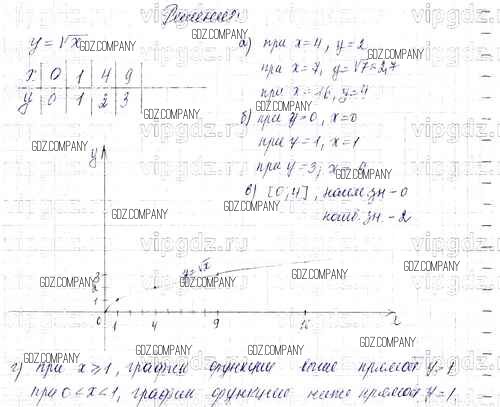 Решение
y = √x
x | 0 | 1 | 4 | 9
y | 0 | 1 | 2 | 3
а) при x = 4, y = 2
при x = 7, y = √7 = 2,7
при x = 16, y = 4
б) при y = 0, x = 0
при y = 1, x = 1
при y = 3, x =
в) [0,4], наим. зн - 0
наиб. зн. - 2
y
y = √x
3
1
0 1 4 9 x
г) при x > 1, график функции выше прямой y = 1
при 0 < x < 1, график функции ниже прямой y = 1,
GDZ.COMPANY
vipgdz.ru